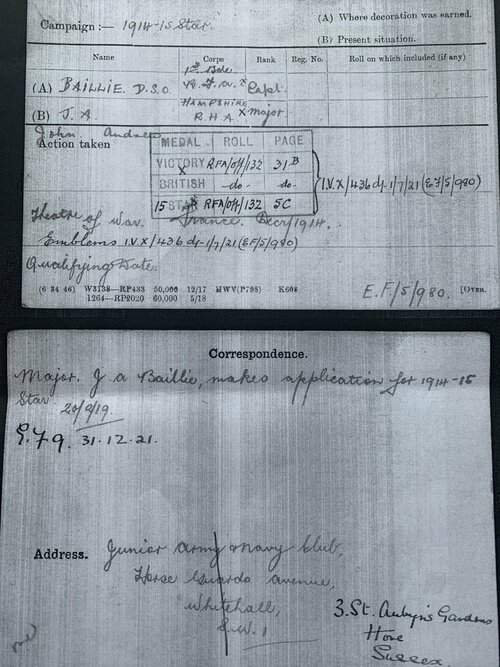 Campaign :— 1914-15 Star.
(A) Where decoration was earned.
(B) Present situation.
Name Corps Rank Reg. No. Roll on which included (if any)
(A) BAILLIE. D.S.O. R.F.A. x Capt.
(B) J.A. HAMPSHIRE R.H.A. x Major
John Andrew
Action taken
MEDAL ROLL PAGE
VICTORY RFA/off/132 31B
BRITISH -do- -do-
15 STAR RFA/off/132 5C
I.V.X/436 d/- 1/7/21 (E.F/5/980)
Theatre of War. France. Decr/1914.
Emblems I.V X/436 d/-1/7/21 (EF/5/980)
Qualifying Date
(6 34 46) W3138—RP433 50,000 12/17 HWV(P798) K608
1264—RP2020 60,000 5/18
E.F/5/980.
[OVER.
Correspondence.
Major. J. a Baillie, makes application for 1914-15
Star. 20/9/19.
31.12.21.
Address. Junior Army & Navy Club,
Horse Guards Avenue,
Whitehall,
S.W.1
3. St. Aubyn's Gardens
Hove
Sussex